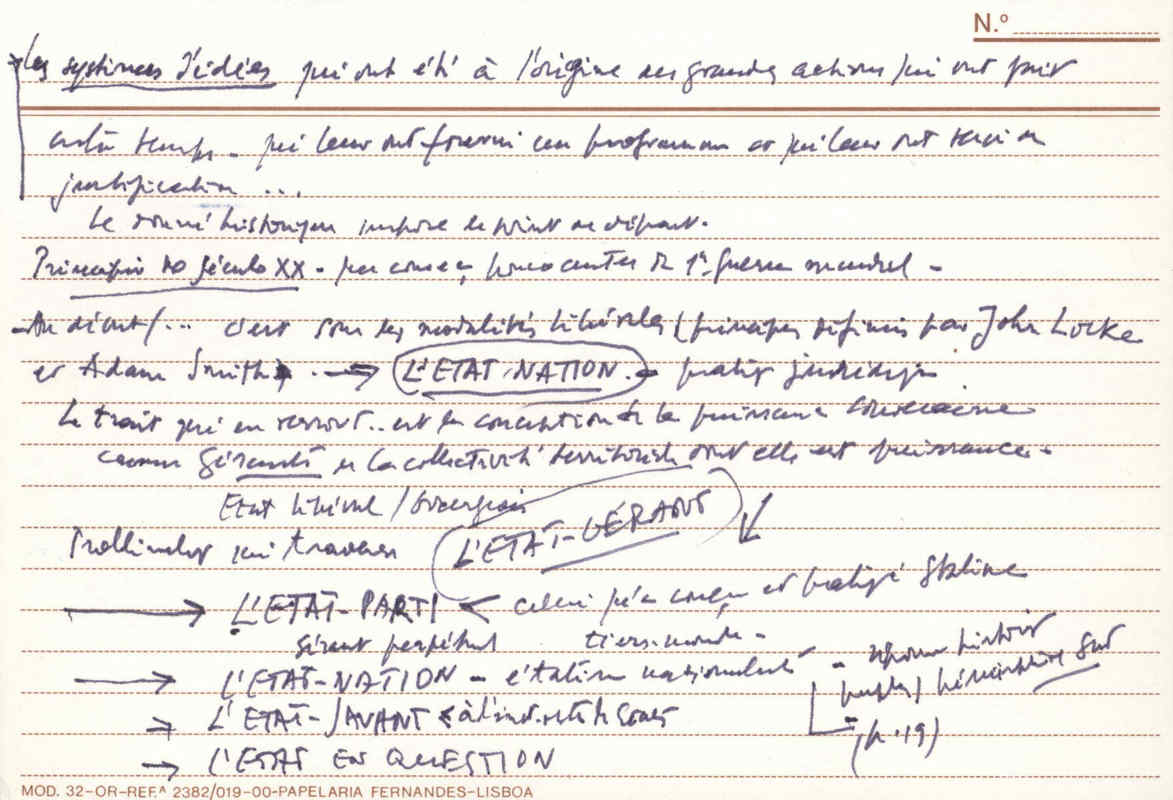 N.º
Les systèmes d'idées qui ont été à l'origine des grandes actions qui ont fait
notre temps - qui leur ont fourni un programme et qui leur ont servi de
justification ...
Le donné historique impose le point de départ.
Princípio do século XX - 1ª guerra mundial -
- Au début / ... c'est sous les modalités libérales (principes définis par John Locke
et Adam Smith) → L'ETAT-NATION - juridique
Le trait qui en ressort .. est la conception de la puissance souveraine
comme gérante de la collectivité territoriale dont elle est puissance -
Etat libéral / bourgeois
L'ETAT-GÉRANT
qui traverse
→ L'ETAT-PARTI < celui qu'a conçu et pratiqué Staline
Gérant perpétuel tiers-monde -
→ L'ETAT-NATION - étatisme nationalitaire
→ L'ETAT-SAVANT
→ L'ETAT EN QUESTION
hémisphère Sud
(p. 19)
MOD. 32-OR-REF.ª 2382/019-00-PAPELARIA FERNANDES-LISBOA